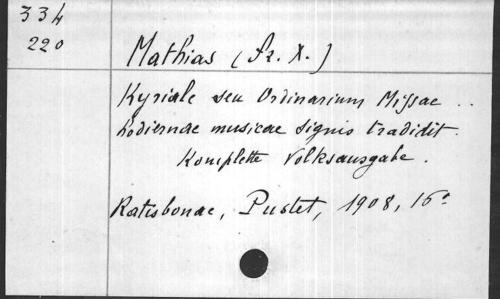 334
220
Mathias (Fr. X.)
Kyriale seu Ordinarium Missae ..
hodiernae musicae signis tradidit.
Komplette Volksausgabe.
Ratisbonae, Pustet, 1908, 16°